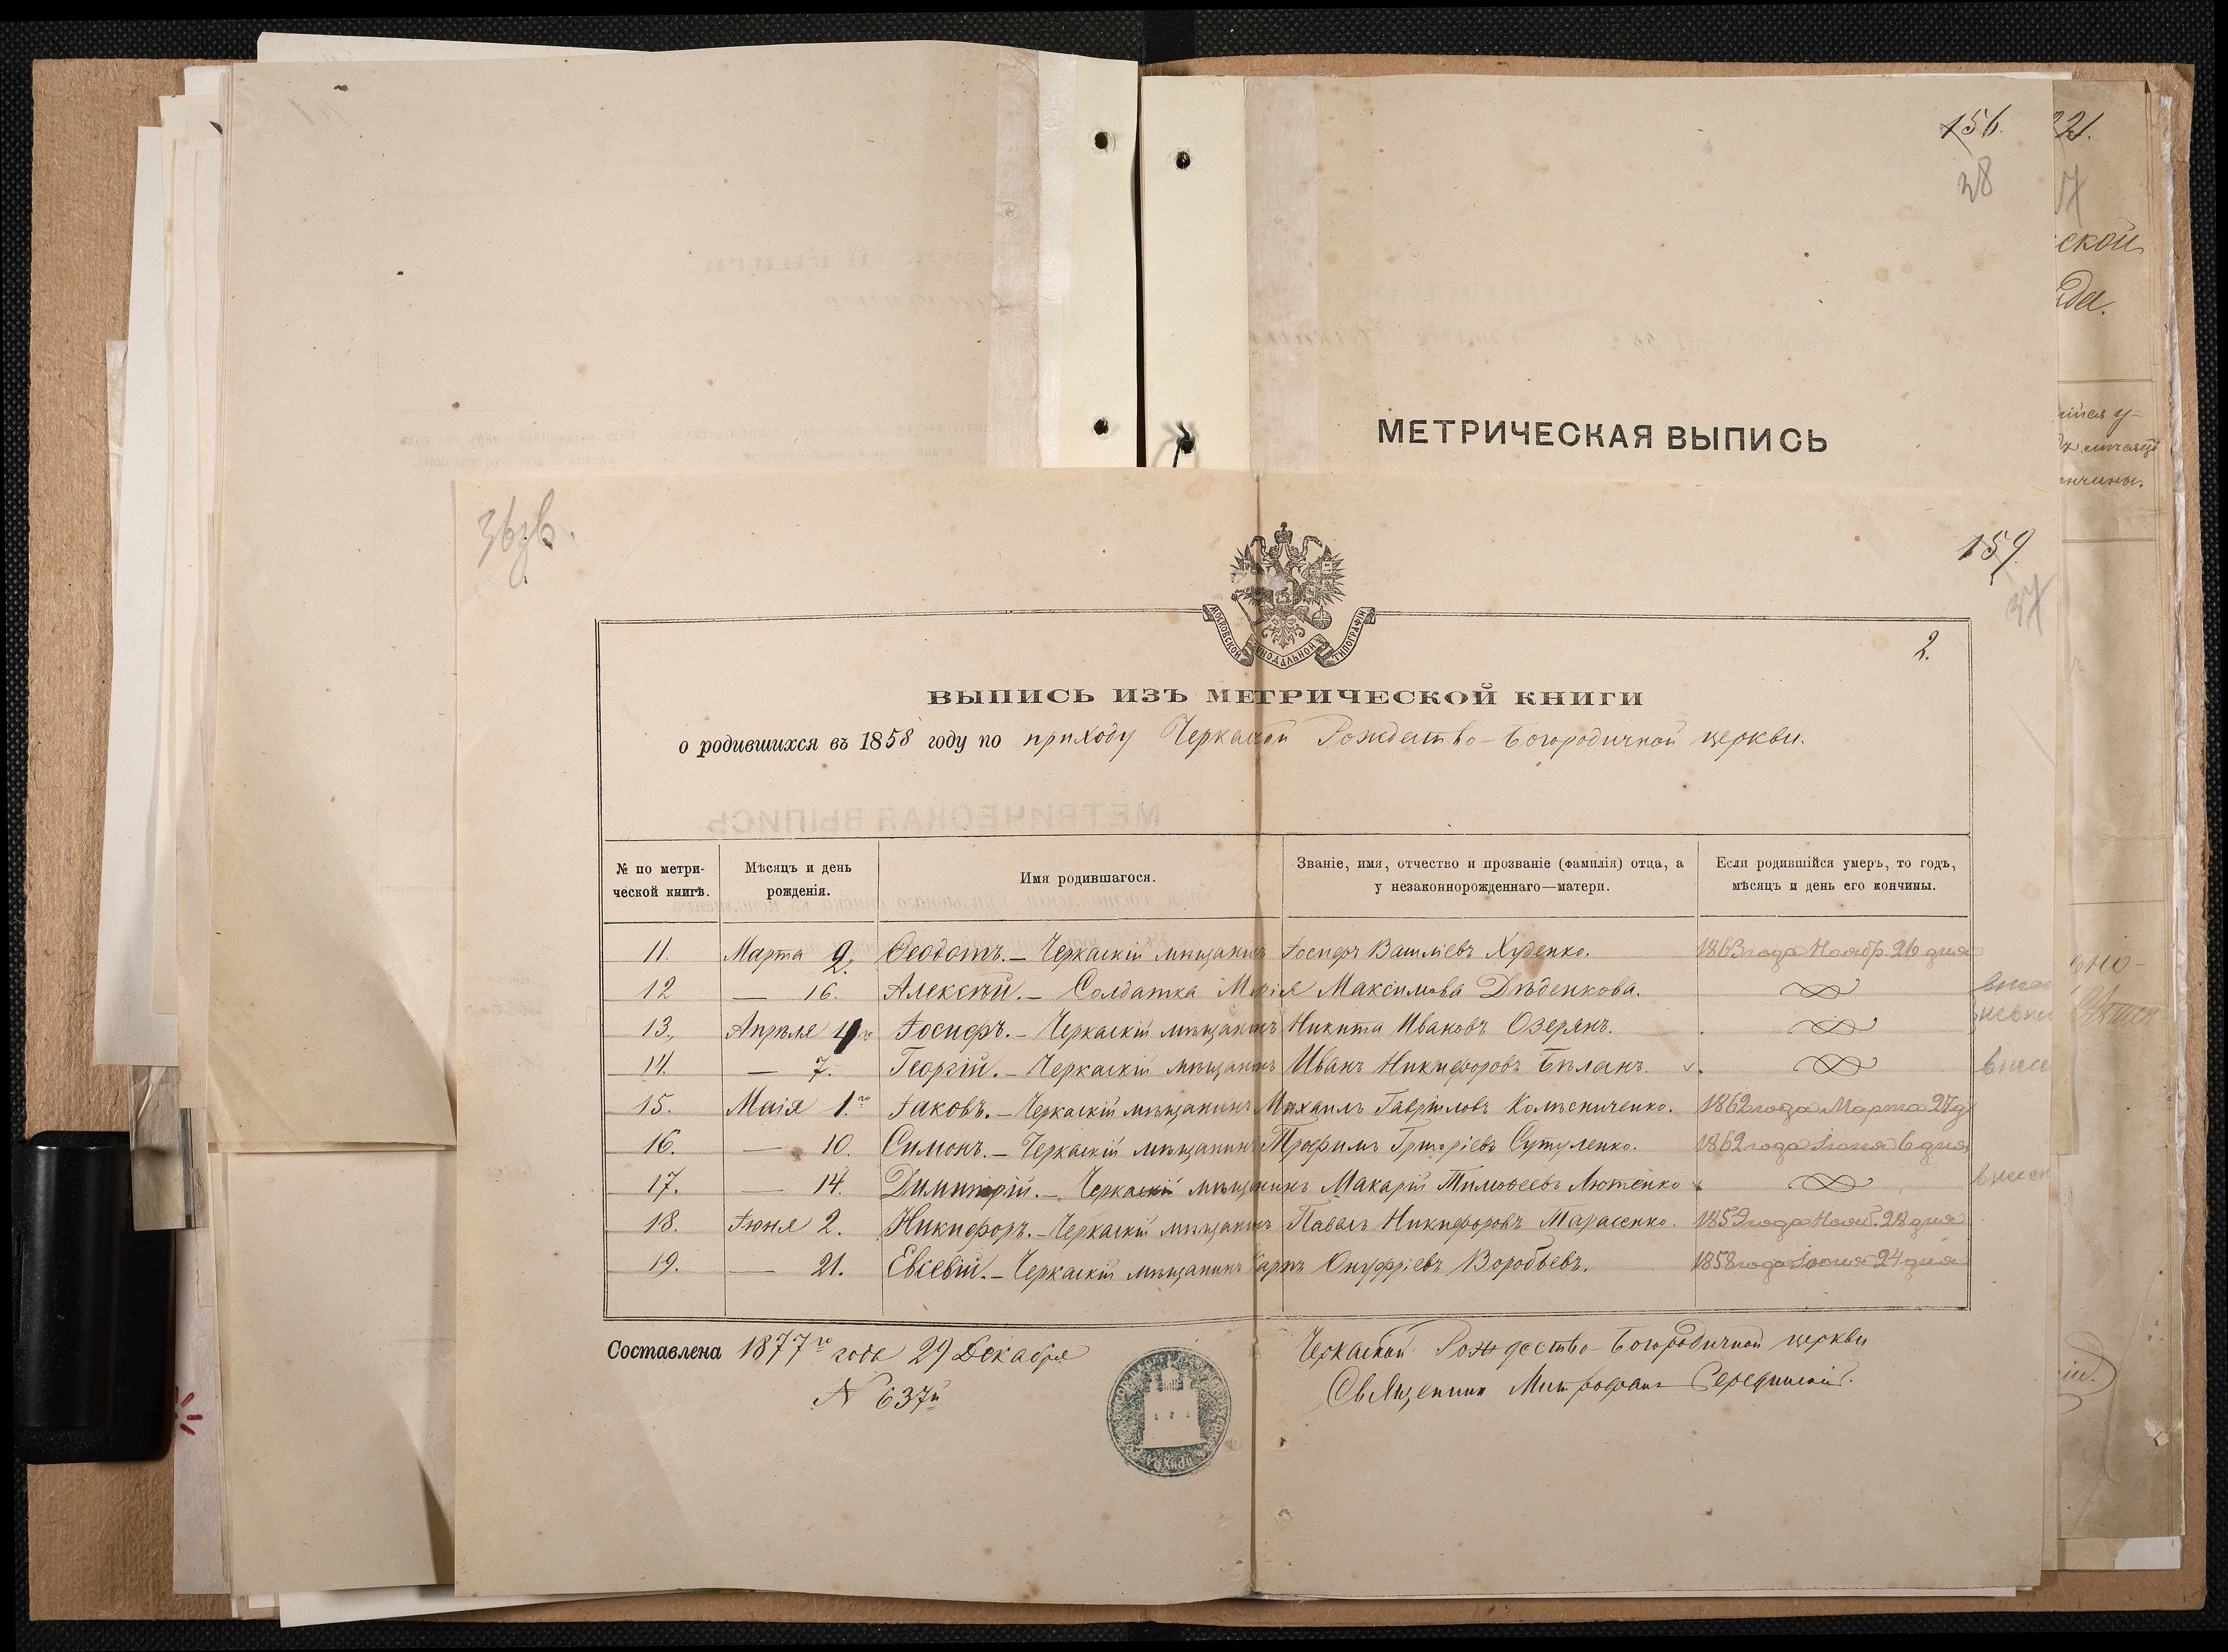 156.
38
221.
ской
МЕТРИЧЕСКАЯ ВЫПИСЬ
159.
37
2.
МОСКОВСКОЙ СИНОДАЛЬНОЙ ТИПОГРАФІИ
ВЫПИСЬ ИЗЪ МЕТРИЧЕСКОЙ КНИГИ
о родившихся въ 1858 году по приходу Черкаской Рождество-Богородичной церкви.
№ по метри-ческой книгѣ. Мѣсяцъ и день рожденія. Имя родившагося. Званіе, имя, отчество и прозваніе (фамилія) отца, а у незаконнорожденнаго—матери. Если родившійся умеръ, то годъ, мѣсяцъ и день его кончины.
11. Марта 2. Ѳеодотъ.— Черкаскій мѣщанинъ Іосифъ Василіевъ Худенко. 1863 года Ноябр. 26 дня
12 — 16. Алексѣй.— Солдатка Марія Максимова Дѣденкова.
13. Апрѣля 4го Іосифъ.— Черкаскій мѣщанинъ Никита Ивановъ Озерянъ.
14. — 7. Георгій.— Черкаскій мѣщанинъ Иванъ Никифоровъ Бѣланъ. внесе
15. Маія 1.го Іаковъ.— Черкаскій мѣщанинъ Михаилъ Гавріиловъ Колѣсниченко. 1862 года Марта 27 д
16. — 10. Симонъ.— Черкаскій мѣщанинъ Трофимъ Григоріевъ Сутуленко. 1862 года Іюня 6 дня
17. — 14. Димитрій.— Черкаскій мѣщанинъ Макарій Тимоѳеевъ Лютенко внесен
18. Іюня 2. Никифоръ.— Черкаскій мѣщанинъ Павелъ Никифоровъ Марасенко. 1859 года Нояб. 28 дня
19. — 21. Евсевій.— Черкаскій мѣщанинъ Карпъ Онуфріевъ Воробьевъ. 1858 года Іюня 24 дня
Составлена 1877го года 29 Декабря
N 637й
Черкаской Рождество-Богородичной церкви
Священникъ Митрофанъ Серединскій.